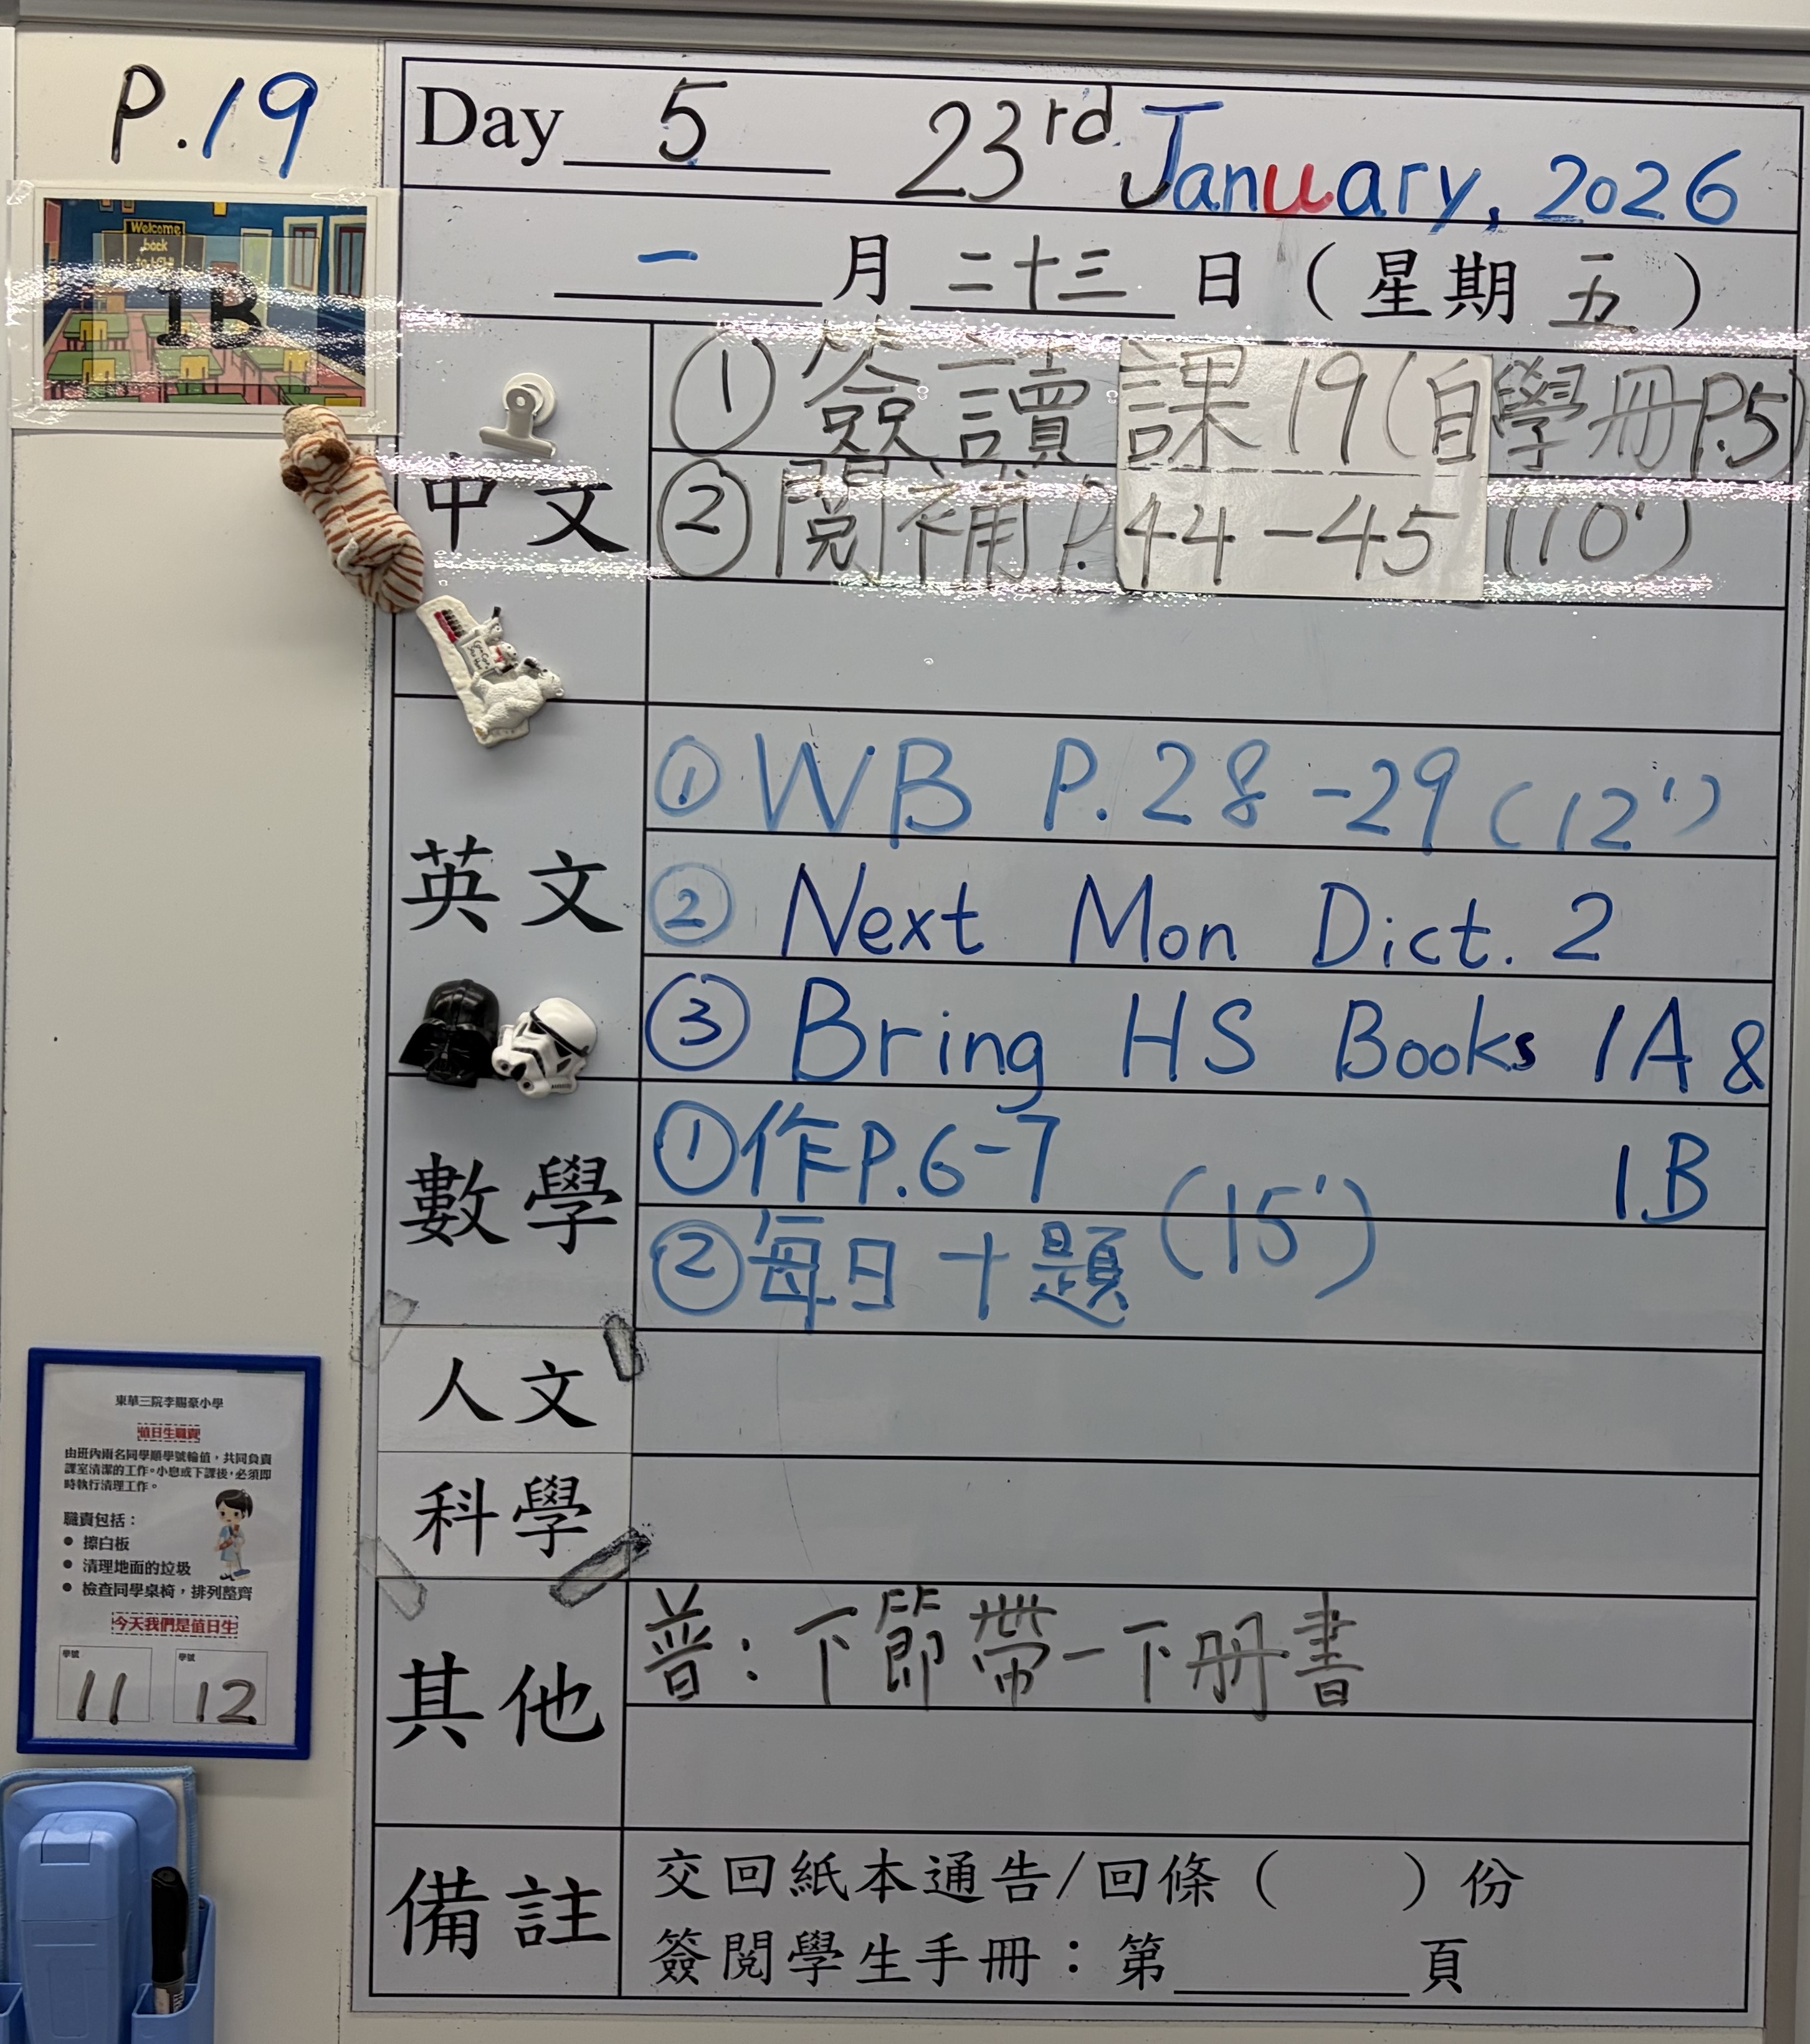 P.19
Day 5 23rd January, 2026
一 月 二十三 日 ( 星期 五 )
Welcome
back
1B
中文
① 簽讀課19(自學冊P.5)
② 閱補P.44-45 (10')
英文
① WB P.28-29 (12')
② Next Mon Dict. 2
③ Bring HS Books 1A &
1B
數學
① 作P.6-7
② 每日十題 (15')
人文
科學
其他
普:下節帶一下册書
備註
交回紙本通告/回條( )份
簽閱學生手冊:第 頁
東華三院李賜豪小學
值日生職責
由班內兩名同學順學號輪值,共同負責
課室清潔的工作。小息或下課後,必須即
時執行清理工作。
職責包括:
● 擦白板
● 清理地面的垃圾
● 檢查同學桌椅,排列整齊
今天我們是值日生
學號 學號
11 12